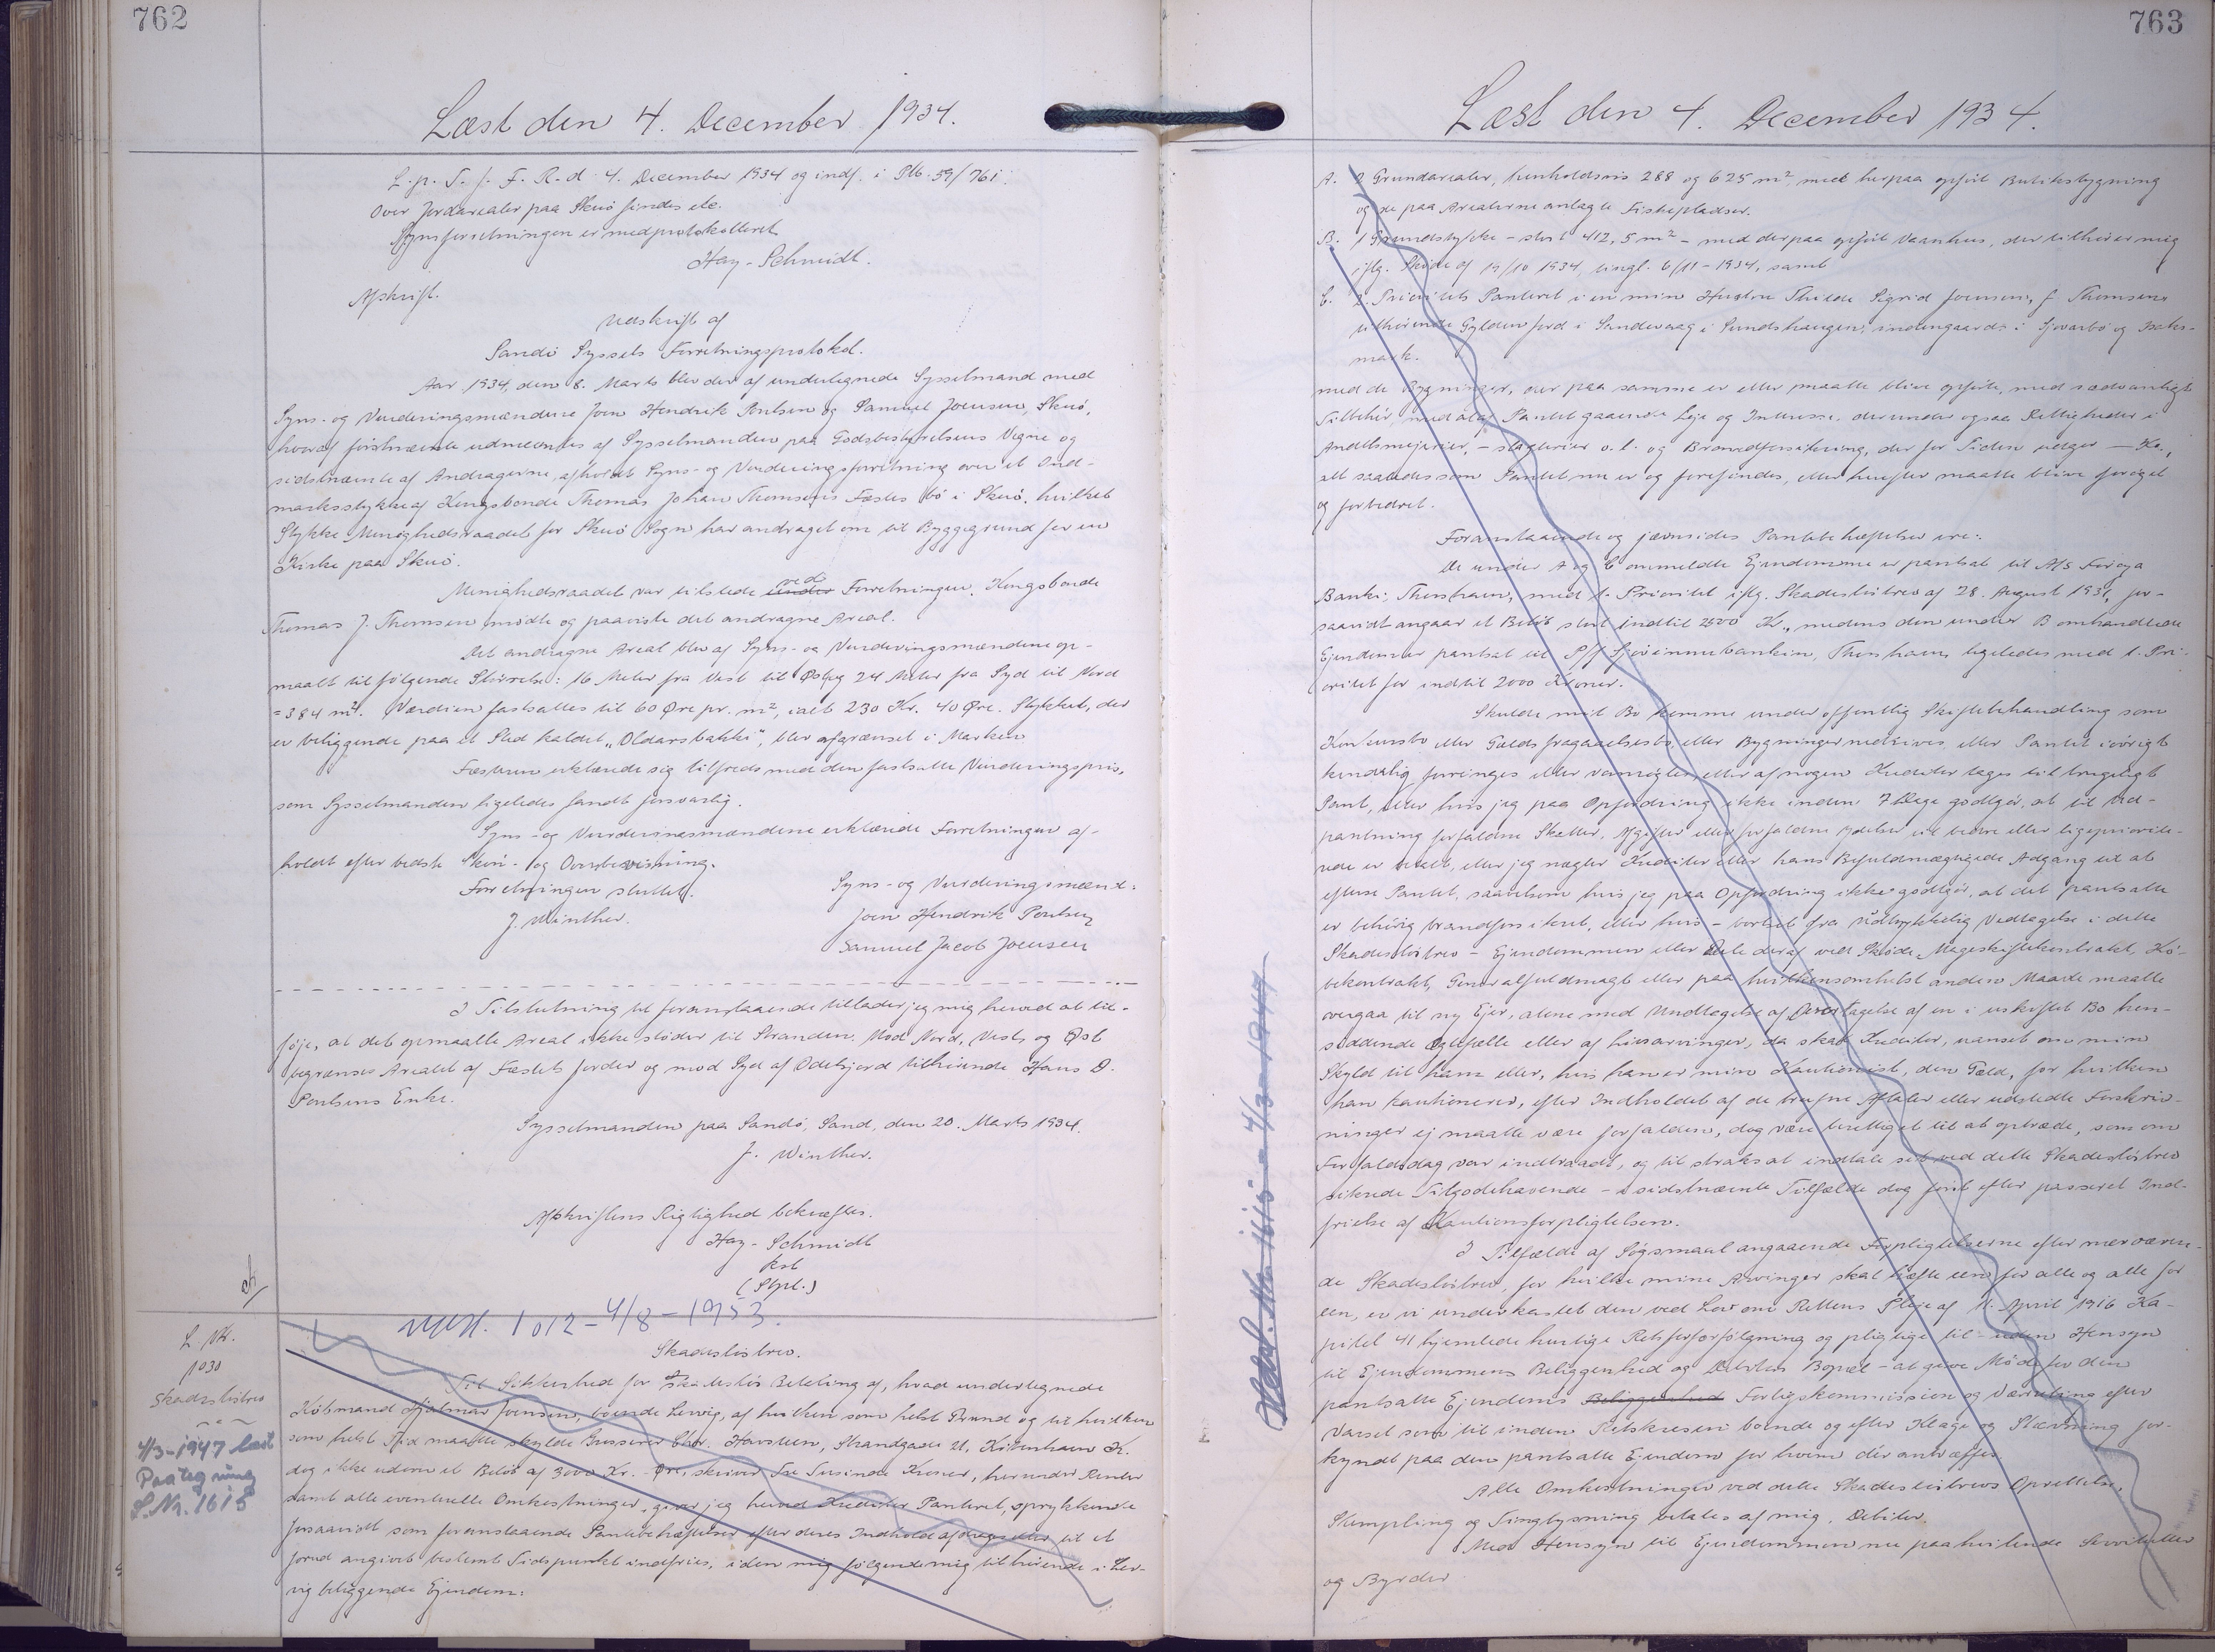 762
Læst den 4. December 1934.
L. p. T. f. F. R. d. 4. December 1934 og indf. i Ptb. 59/761.
Over Jordarealer paa Skuö findes ele.
Synsforretningen er medprotokolleret
Hay-Schmidt.
Afskrift.
Udskrift af
Sandö Syssels Forretningsprotokol.
Aar 1934, den 8. Marts blev der af undertegnede Sysselmand med
Syns- og Vurderingsmændene Joen Hendrik Poulsen og Samuel Joensen, Skuö,
hvoraf förstnævnte udmeldtes af Sysselmanden paa Godsbestyrelsens Vegne og
sidstnævnte af Andragerne, afholdt Syns- og Vurderingsforretning over et Ind-
marksstykke af Kongsbonde Thomas Johan Thomsens Fæste bö i Skuö, hvilket
Stykke Menighedsraadet for Skuö Sogn har andraget om til Byggegrund for en
Kirke paa Skuö.
Menighedsraadet var tilstede under ved Forretningen. Kongsbonde
Thomas J. Thomsen mödte og paaviste det andragne Areal.
Det andragne Areal blev af Syns- og Vurderingsmændene op-
maalt til følgende Störrelse: 16 Meter fra Vest til Øst og 24 Meter fra Syd til Nord
= 384 m². Værdien fastsattes til 60 Øre pr. m², ialt 230 Kr. 40 Øre. Stykket, der
er beliggende paa et Sted kaldet "Oldarsbakki", blev afgrænset i Marken.
Fæsteren erklærede sig tilfreds med den fastsatte Vurderingspris,
som Sysselmanden ligeledes fandt forsvarlig.
Syns- og Vurderingsmændene erklærede Forretningen af-
holdt efter bedste Skön- og Overbevisning.
Forretningen sluttet.
J. Winther.
Syns- og Vurderingsmænd:
Joen Hendrik Poulsen
Samuel Jacob Joensen
I Tilslutning til foranstaaende tillader jeg mig herved at til-
föje, at det opmaalte Areal ikke stöder til Stranden. Mod Nord, Vest og Øst
begrænses Arealet af Fæstets Jorder og mod Syd af Odelsjord tilhörende Hans D.
Poulsens Enke.
Sysselmanden paa Sandö, Sand, den 20. Marts 1934.
J. Winther.
Afskriftens Rigtighed bekræftes.
Hay-Schmidt
kst
(Stpl.)
1012 - 4/8 - 1953.
L. Nr.
1030
Skadeslösbrev
4/3-1947 læst
Paategning
L. Nr. 1615
Skadeslösbrev.
Til Sikkerhed for skadeslös Betaling af, hvad undertegnede
Købmand Hjalmar Joensen, boende Lervig, af hvilken som helst Grund og til hvilken
som helst Tid maatte skylde Grosserer Chr. Havsteen, Strandgade 21, København K.
dog ikke udover et Beløb af 3000 Kr. Øre, skriver Tre Tusinde Kroner, herunder Renter
samt alle eventuelle Omkostninger, giver jeg herved Kreditor Panteret, oprykkende
forsaavidt som foranstaaende Pantebehæftelser efter deres Indhold afdrages eller til et
forud angivet bestemt Tidspunkt indfries, i den mig følgende mig tilhörende i Ler-
vig beliggende Ejendom:
763
Læst den 4. December 1934.
A. 2 Grundarealer, henholdsvis 288 og 625 m², med herpaa opfört Butiksbygning
og de paa Arealerne anlagte Fiskepladser.
B. 1 Grundstykke - stort 412,5 m² - med derpaa opfört Vaanhus, der tilhører mig
iflg. Skøde af 19/10 1934, tingl. 6/11-1934, samt
C. 2. Prioritets Panteret i en min Hustru Thilda Sigrid Joensen, f. Thomsen
tilhörende Gylden Jord i Sandevaag i Sundshaugen, indengaards i
mark.
med de Bygninger, der paa samme er eller maatte blive opfört, med sædvanligt
Tilbehör, med af Pantet gaaende Leje og Interesse, derunder ogsaa Rettigheder i
Andelsmejerier, - slagterier o. l. og Brandforsikring, der for Tiden udgør — Kr.,
alt saaledes som Pantet nu er og forefindes, eller herefter maatte blive forøget
og forbedret.
Foranstaaende og jævnsides Pantebehæftelser ere:
De under A og C ommeldte Ejendomme er pantsat til A/S Føroya
Banki, Thorshavn, med 1. Prioritet iflg. Skadeslösbrev af 28. August 1931, for-
saavidt angaar et Beløb stort indtil 2500 Kr., medens den under B omhandlede
Ejendom er pantsat til P/F Sjóvinnubankin, Thorshavn, ligeledes med 1. Pri-
oritet for indtil 2000 Kroner.
Skulde mit Bo komme under offentlig Skiftebehandling som
Konkursbo eller Gælds fragaaelsesbo, eller Bygninger nedrives, eller Pantet iøvrigt
kendelig forringes eller vanrögtes, eller af nogen Kreditor tages til brugeligt
Pant, eller hvis jeg paa Opfordring ikke inden 7 Dage godtgör, at til Ud-
pantning forfaldne Skatter, Afgifter eller forfaldne Ydelser til bedre eller ligepriorite-
rede er betalt, eller jeg nægter Kreditor eller hans Befuldmægtigede Adgang til at
efterse Pantet, saavelsom hvis jeg paa Opfordring ikke godtgör, at det pantsatte
er behörig brandforsikret, eller hvis - bortset fra udtrykkelig Vedtagelse i dette
Skadeslösbrev - Ejendommen eller Dele deraf ved Sköde, Mageskiftekontrakt, Kö-
bekontrakt, Generalfuldmagt eller paa hvilkensomhelst anden Maade maatte
overgaa til ny Ejer, alene med Undtagelse af Overtagelse af en i uskiftet Bo hen-
siddende Ægtefælle eller af Livsarvinger, da skal Kreditor, uanset om min
Skyld til ham eller, hvis han er min Kautionist, den Gæld, for hvilken
han kautionerer, efter Indholdet af de trufne Aftaler eller udstedte Forskriv-
ninger ej maatte være forfalden, dog være berettiget til at optræde, som om
Forfaldsdag var indtraadt, og til straks at inddtale sit ved dette Skadeslösbrev
sikrede Tilgodehavende - i sidstnævnte Tilfælde dog först efter passeret Ind-
frielse af Kautionsforpligtelsen.
I Tilfælde af Sögsmaal angaaende Forpligtelserne efter nærværen-
de Skadeslösbrev, for hvilke mine Arvinger skal hæfte een for alle og alle for
een, er vi underkastet den ved Lov om Rettens Pleje af 11. April 1916 Ka-
pitel 41 hjemlede hurtige Retsforforfölgning og pligtige til - uden Hensyn
til Ejendommens Beliggenhed og Debitors Bopæl - at give Møde for den
pantsatte Ejendoms Beliggenhed Forligskommission og Værneting efter
Varsel som til inden Retskredsen boende og efter Klage og Stævning for-
kyndt paa den pantsatte Ejendom for hvem der antræffes.
Alle Omkostninger ved dette Skadeslösbrevs Oprettelse,
Stempling og Tinglysning betales af mig, Debitor.
Med Hensyn til Ejendommen nu paahvilende Servitutter
og Byrder
1615 - 4/3-1947